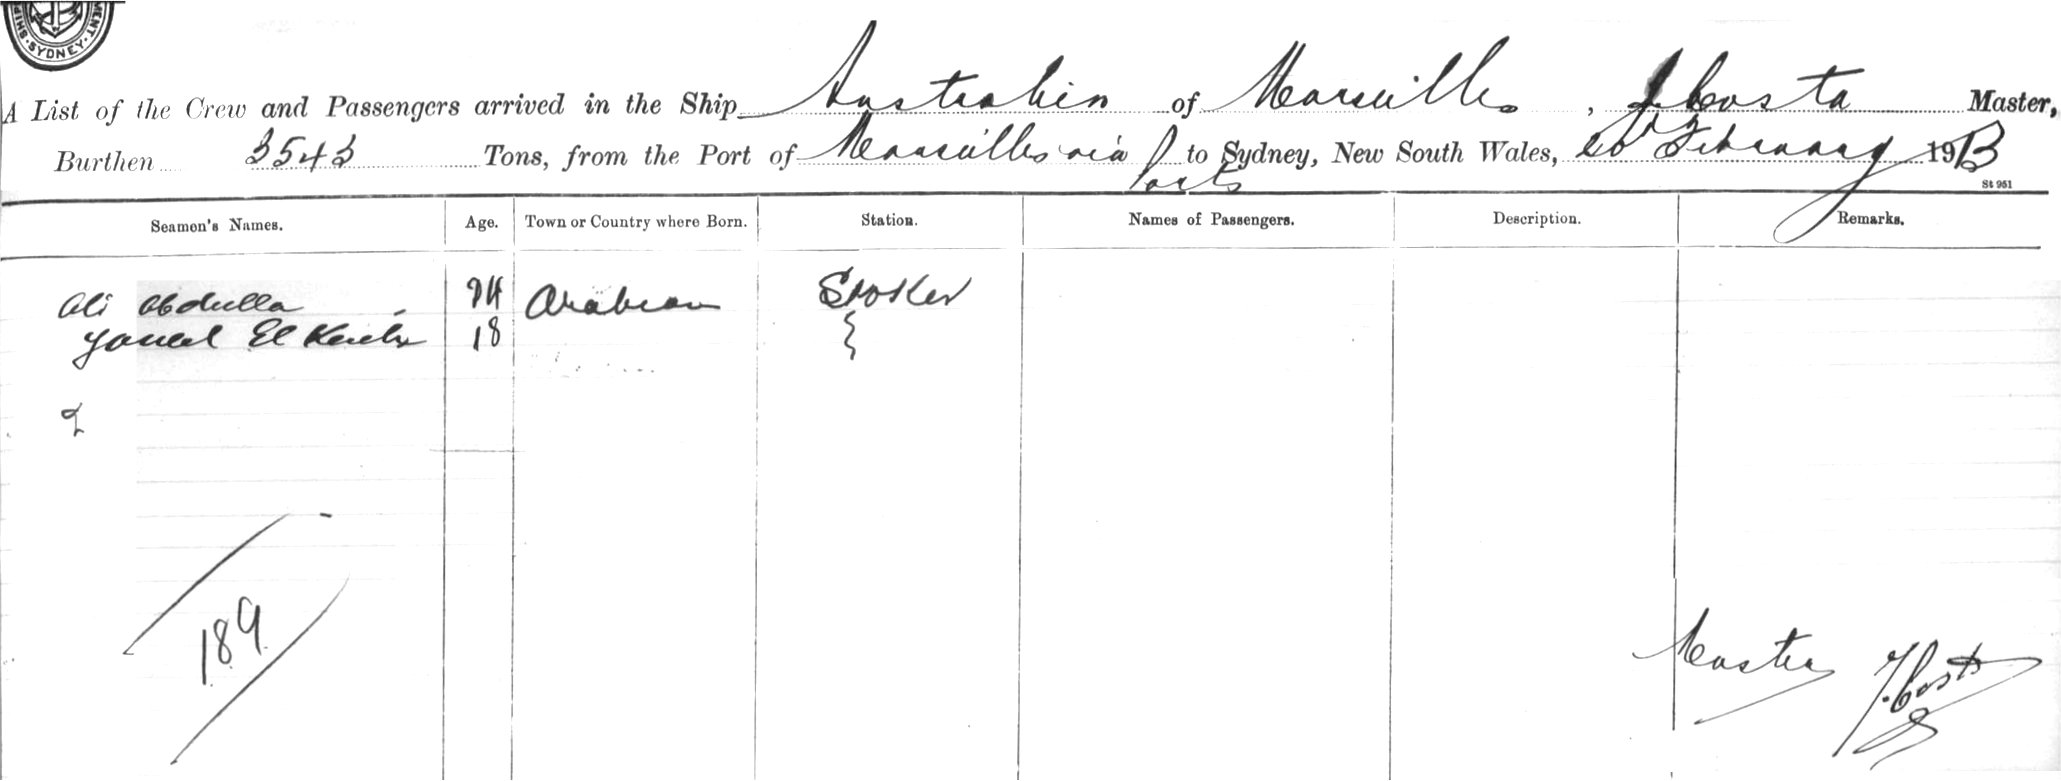 SHIP MENT. SYDNEY.
A List of the Crew and Passengers arrived in the Ship Australien of Marseilles, J Costa Master,
Burthen 3543 Tons, from the Port of Marseilles via Ports to Sydney, New South Wales, February 1913
St 951
Seamen's Names. Age. Town or Country where Born. Station. Names of Passengers. Description. Remarks.
Ali Abdulla Arabian Stoker
El 18
2
189
Master J. Costa